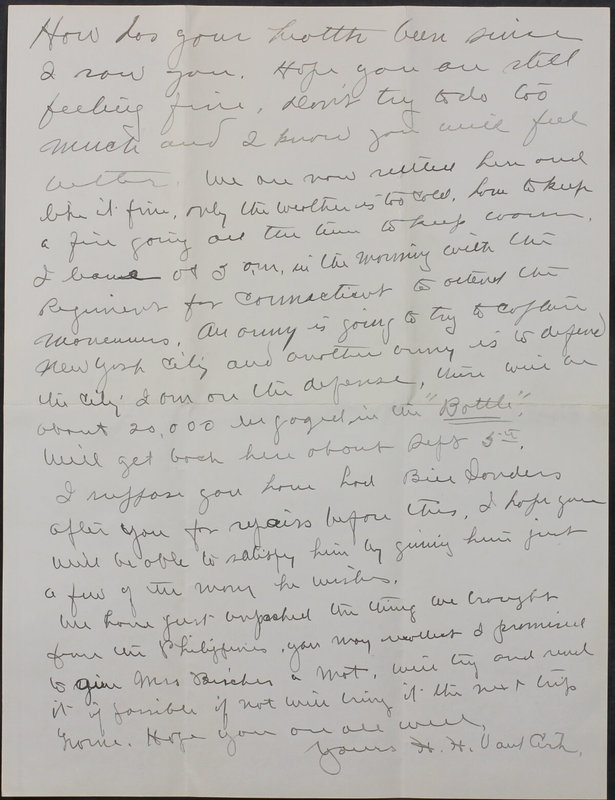 How has your health been since
I saw you. Hope you are still
feeling fine, don't try to do too
much and I know you will feel
better. We are now settled here and
like it fine, only the weather is too cold, have to keep
a fire going all the time to keep warm.
I leave at 3 a.m. in the morning with the
Regiment for Connecticut to attend the
maneuvers. An army is going to try to capture
New York City and another army is to defend
the City. I am on the defense, there will be
about 20,000 engaged in the "Battle".
Will get back here about Sept 5th.
I suppose you have had Bill
after you for repairs before this. I hope you
will be able to satisfy him by giving him just
a few of the many he wishes.
We have just unpacked the thing we brought
from the Philippines, you may recollect I promised
to give Mrs a mat, will try and send
it if possible if not will bring it the next trip
home. Hope you are all well,
Yours H. H.